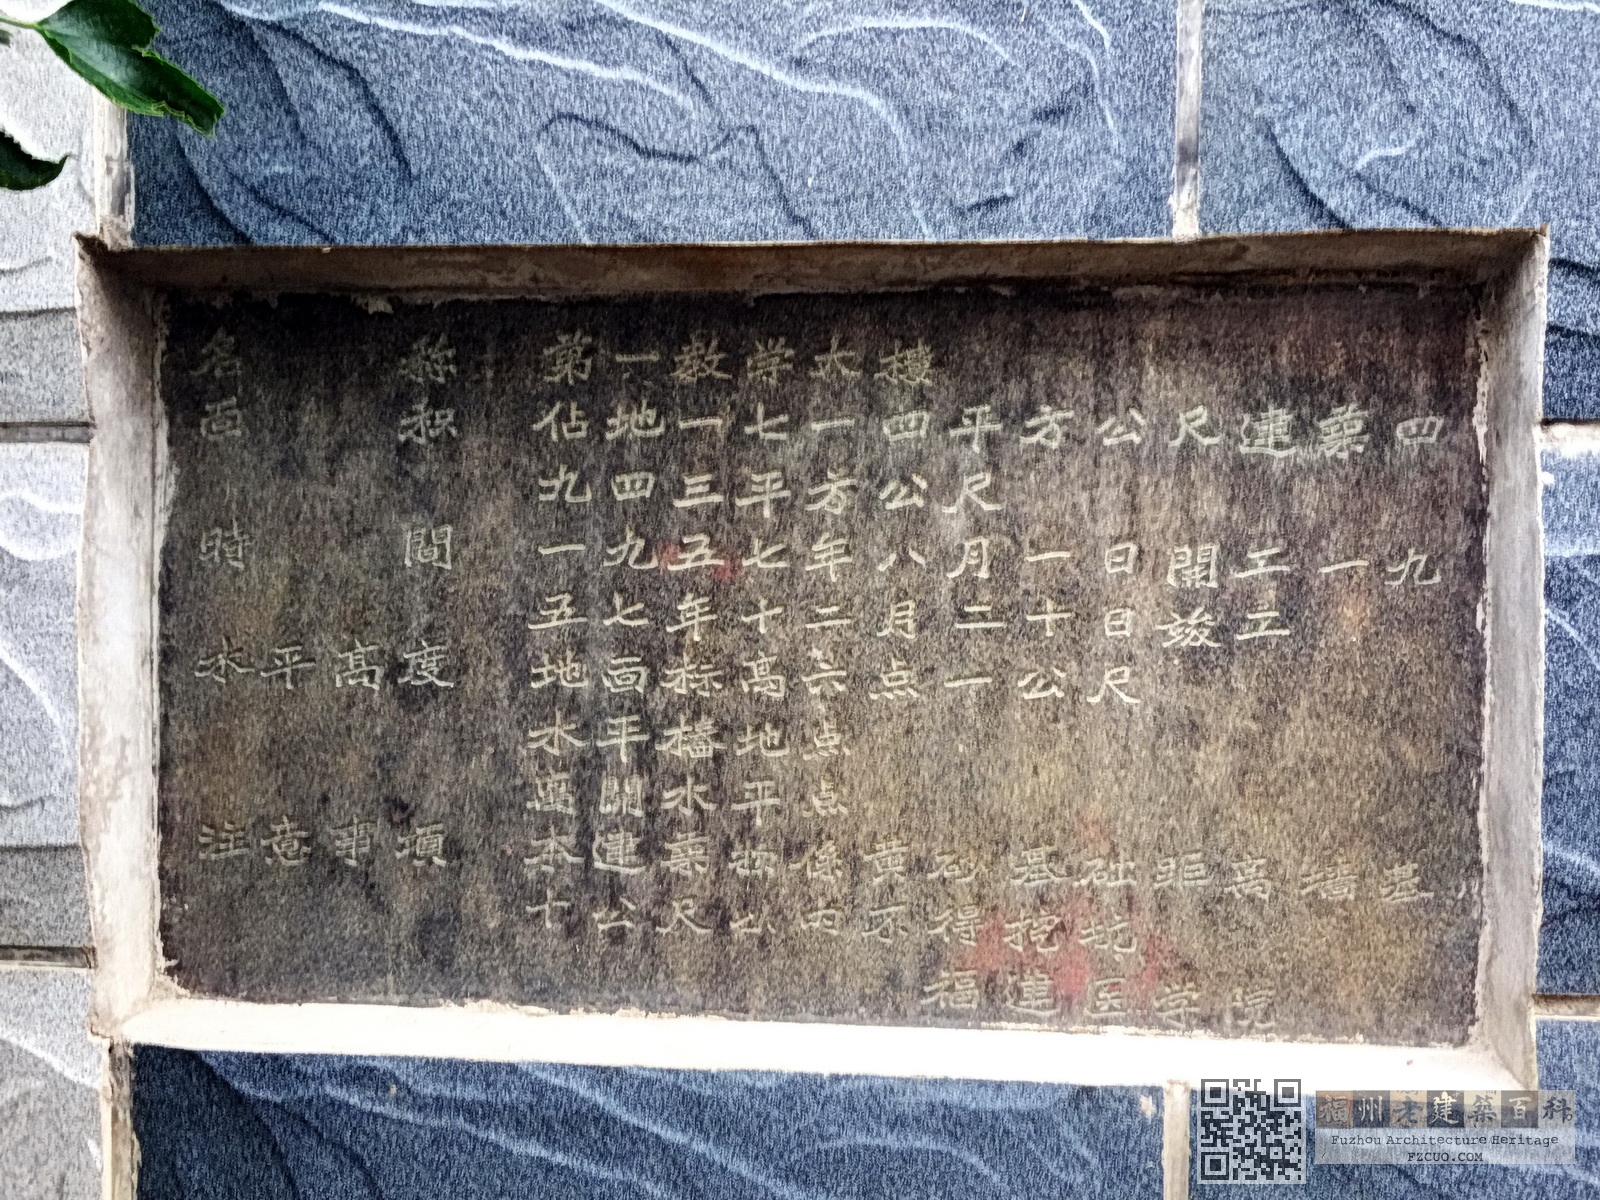 名称 第一教学大楼
面积 佔地一七一四平方公尺建築四
九四三平方公尺
時間 一九五七年八月一日開工一九
五七年十二月二十日竣工
水平高度 地面标高六点一公尺
水平
離開水平点
注意事項 本建築物係黄砂基础距离墙基
十公尺以内不得挖坑
福建医学院
福州老建築百科
Fuzhou Architecture Heritage
FZCUO.COM